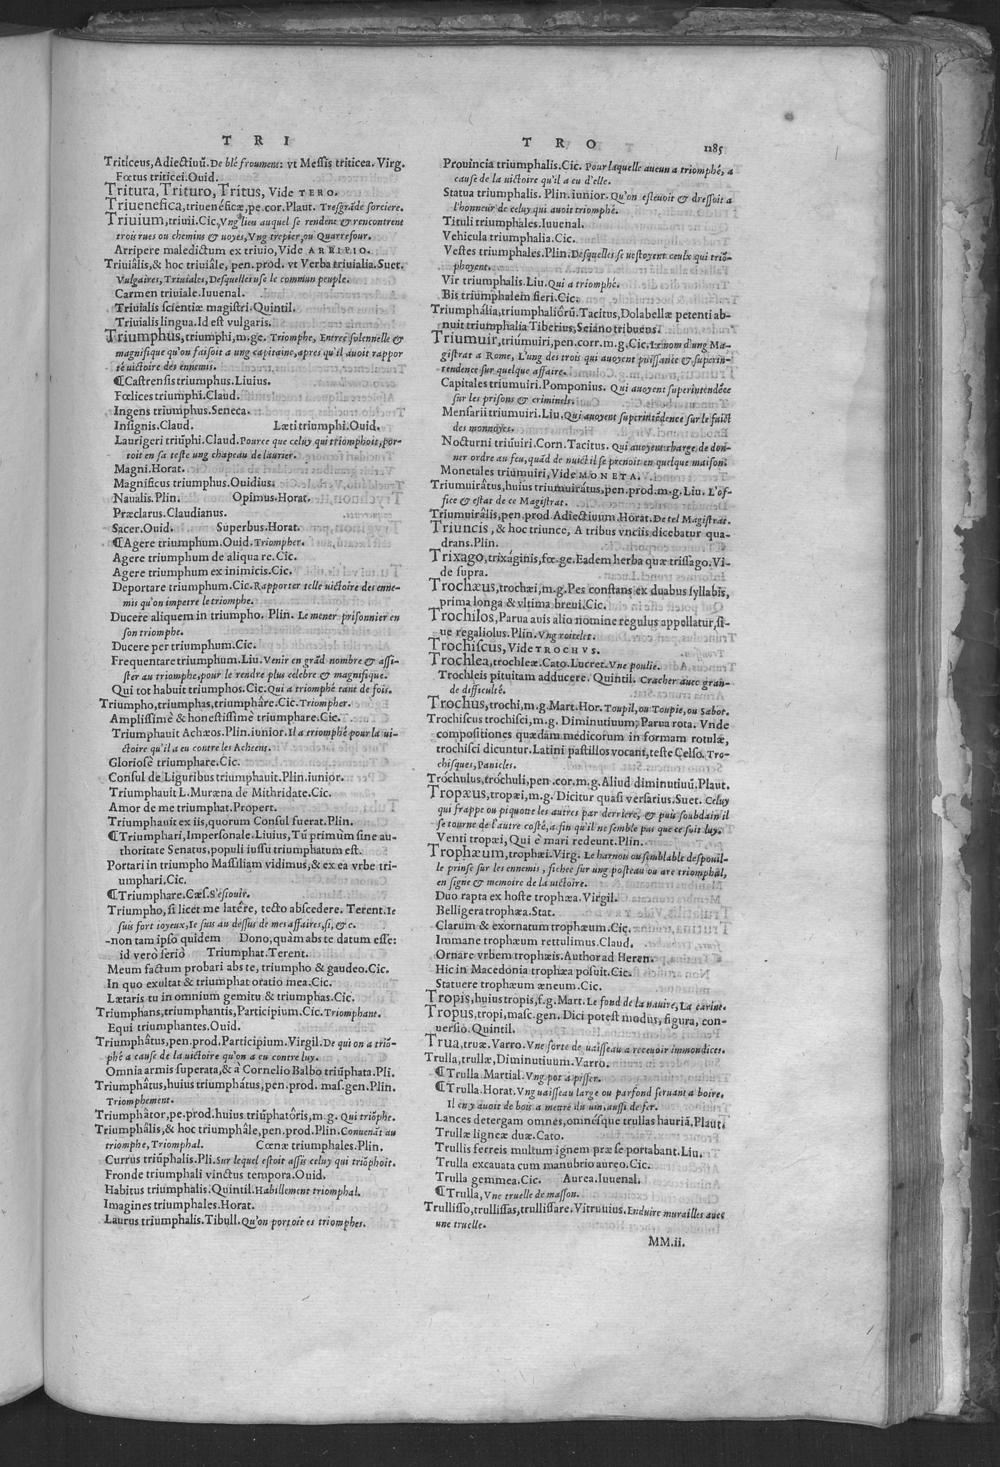 T R I
Triticeus, Adiectiuū. De blé froument: vt Messis triticea. Virg.
Fœtus triticei. Ouid.
Tritura, Trituro, Tritus, Vide TERO.
Triuenefica, triuenéficæ, pe. cor. Plaut. Tresgrāde sorciere.
Triuium, triuii. Cic, Vng lieu auquel se rendent & rencontrent
trois rues ou chemins & uoyes, Vng trepier, ou Quarrefour.
Arripere maledictum ex triuio, Vide ARRIPIO.
Triuiális, & hoc triuiále, pen. prod. vt Verba triuialia. Suet.
Vulgaires, Triuiales, Desquelles use le commun peuple.
Carmen triuiale. Iuuenal.
Triuialis scientiæ magistri. Quintil.
Triuialis lingua. Id est vulgaris.
Triumphus, triumphi, m. ge. Triomphe, Entree solennelle &
magnifique qu'on faisoit a ung capitaine, apres qu'il auoit rappor
té uictoire des ennemis.
¶Castrensis triumphus. Liuius.
Fœlices triumphi. Claud.
Ingens triumphus. Seneca.
Insignis. Claud. Læti triumphi. Ouid.
Laurigeri triūphi. Claud. Pource que celuy qui triomphoit, por-
toit en sa teste ung chapeau de laurier.
Magni. Horat.
Magnificus triumphus. Ouidius.
Naualis. Plin. Opimus. Horat.
Præclarus. Claudianus.
Sacer. Ouid. Superbus. Horat.
¶Agere triumphum. Ouid. Triompher.
Agere triumphum de aliqua re. Cic.
Agere triumphum ex inimicis. Cic.
Deportare triumphum. Cic. Rapporter telle uictoire des enne-
mis qu'on impetre le triomphe.
Ducere aliquem in triumpho. Plin. Le mener prisonnier en
son triomphe.
Ducere per triumphum. Cic.
Frequentare triumphum. Liu. Venir en grād nombre & assi-
ster au triomphe, pour le rendre plus celebre & magnifique.
Qui tot habuit triumphos. Cic. Qui a triomphé tant de fois.
Triumpho, triumphas, triumphâre. Cic. Triompher.
Amplissimè & honestissimè triumphare. Cic.
Triumphauit Achæos. Plin. iunior. Il a triomphé pour la ui-
ctoire qu'il a eu contre les Acheens.
Gloriosè triumphare. Cic.
Consul de Liguribus triumphauit. Plin. iunior.
Triumphauit L. Muræna de Mithridate. Cic.
Amor de me triumphat. Propert.
Triumphauit ex iis, quorum Consul fuerat. Plin.
¶Triumphari, Impersonale. Liuius, Tū primùm sine au-
thoritate Senatus, populi iussu triumphatum est.
Portari in triumpho Massiliam vidimus, & ex ea vrbe tri-
umphari. Cic.
¶Triumphare. Cæs. S'esiouir.
Triumpho, si licet me latêre, tecto abscedere. Terent. Ie
suis fort ioyeux, Ie suis au dessus de mes affaires, si, &c.
-non tam ipso quidem Dono, quàm abs te datum esse:
id verò seriò Triumphat. Terent.
Meum factum probari abs te, triumpho & gaudeo. Cic.
In quo exultat & triumphat oratio mea. Cic.
Lætaris tu in omnium gemitu & triumphas. Cic.
Triumphans, triumphantis, Participium. Cic. Triomphant.
Equi triumphantes. Ouid.
Triumphâtus, pen. prod. Participium. Virgil. De qui on a triō-
phé a cause de la uictoire qu'on a eu contre luy.
Omnia armis superata, & à Cornelio Balbo triūphata. Pli.
Triumphâtus, huius triumphâtus, pen. prod. mas. gen. Plin.
Triomphement.
Triumphâtor, pe. prod. huius triūphatôris, m. g. Qui triōphe.
Triumphâlis, & hoc triumphâle, pen. prod. Plin. Conuenāt au
triomphe, Triomphal. Cœnæ triumphales. Plin.
Currus triūphalis. Pli. Sur lequel estoit assis celuy qui triōphoit.
Fronde triumphali vinctus tempora. Ouid.
Habitus triumphalis. Quintil. Habillement triomphal.
Imagines triumphales. Horat.
Laurus triumphalis. Tibull. Qu'on portoit es triomphes.
T R O
1285
Prouincia triumphalis. Cic. Pour laquelle aucun a triomphé, a
cause de la uictoire qu'il a eu d'elle.
Statua triumphalis. Plin. iunior. Qu'on esleuoit & dressoit a
l'honneur de celuy qui auoit triomphé.
Tituli triumphales. Iuuenal.
Vehicula triumphalia. Cic.
Vestes triumphales. Plin. Desquelles se uestoyent ceulx qui triō-
phoyent.
Vir triumphalis. Liu. Qui a triomphé.
Bis triumphalem fieri. Cic.
Triumphália, triumphaliōrū. Tacitus, Dolabellæ petenti ab-
nuit triumphalia Tiberius, Seiano tribuens.
Triumuir, triúmuiri, pen. corr. m. g. Cic. Le nom d'ung Ma-
gistrat a Rome, L'ung des trois qui auoyent puissance & superin-
tendence sur quelque affaire.
Capitales triumuiri. Pomponius. Qui auoyent superintendēce
sur les prisons & criminels.
Mensarii triumuiri. Liu. Qui auoyent superintēdence sur le faict
des monnoyes.
Nocturni triūuiri. Corn. Tacitus. Qui auoyent charge de don-
ner ordre au feu, quād de nuict il se prenoit en quelque maison.
Monetales triumuiri, Vide MONETA.
Triumuirátus, huius triumuirátus, pen. prod. m. g. Liu. L'of-
fice & estat de ce Magistrat.
Triumuirális, pen. prod Adiectiuum. Horat. De tel Magistrat.
Triuncis, & hoc triunce, A tribus vnciis dicebatur qua-
drans. Plin.
Trixago, trixáginis, fœ. ge. Eadem herba quæ trissago. Vi-
de supra.
Trochæus, trochæi, m. g. Pes constans ex duabus syllabis,
prima longa & vltima breui. Cic.
Trochilos, Parua auis alio nomine regulus appellatur, si-
ue regaliolus. Plin. Vng roitelet.
Trochiscus, Vide TROCHVS.
Trochlea, trochleæ. Cato. Lucret. Vne poulie.
Trochleis pituitam adducere. Quintil. Cracher auec gran-
de difficulté.
Trochus, trochi, m. g. Mart. Hor. Toupil, ou Toupie, ou Sabot.
Trochiscus trochisci, m. g. Diminutiuum, Parua rota. Vnde
compositiones quædam medicorum in formam rotulæ,
trochisci dicuntur. Latini pastillos vocant, teste Celso. Tro-
chisques, Panicles.
Tróchulus, tróchuli, pen. cor. m. g. Aliud diminutiuū. Plaut.
Tropæus, tropæi, m. g. Dicitur quasi versarius. Suet. Celuy
qui frappe ou piquotte les autres par derriere, & puis soubdain il
se tourne de l'autre costé, a fin qu'il ne semble pas que ce soit luy.
Venti tropæi, Qui è mari redeunt. Plin.
Trophæum, trophæi. Virg. Le harnois ou semblable despouil-
le prinse sur les ennemis, fichee sur ung posteau ou arc triomphal,
en signe & memoire de la uictoire.
Duo rapta ex hoste trophæa. Virgil.
Belligera trophæa. Stat.
Clarum & exornatum trophæum. Cic.
Immane trophæum rettulimus. Claud.
Ornare vrbem trophæis. Author ad Heren.
Hic in Macedonia trophæa posuit. Cic.
Statuere trophæum æneum. Cic.
Tropis, huius tropis, f. g. Mart. Le fond de la nauire, La carine.
Tropus, tropi, masc. gen. Dici potest modus, figura, con-
uersio. Quintil.
Trua, truæ. Varro. Vne sorte de uaisseau a receuoir immondices.
Trulla, trullæ, Diminutiuum. Varro.
¶Trulla. Martial. Vng pot a pisser.
¶Trulla. Horat. Vng uaisseau large ou parfond seruant a boire.
Il en y auoit de bois a mettre du uin, aussi de fer.
Lances detergam omnes, omnésque trullas hauriā. Plaut.
Trullæ ligneæ duæ. Cato.
Trullis ferreis multum ignem præ se portabant. Liu.
Trulla excauata cum manubrio aureo. Cic.
Trulla gemmea. Cic. Aurea. Iuuenal.
¶Trulla, Vne truelle de masson.
Trullisso, trullissas, trullissare. Vitruuius. Enduire murailles auec
une truelle.
MM.ii.